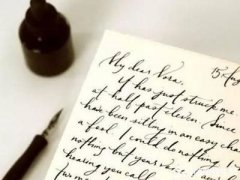 15 Aug
My dear Nora.
It has just struck me
at half past eleven. Since
have been sitting in an easy chair
a fool. I could do nothing. I
nothing but your voice. I am
hearing you call